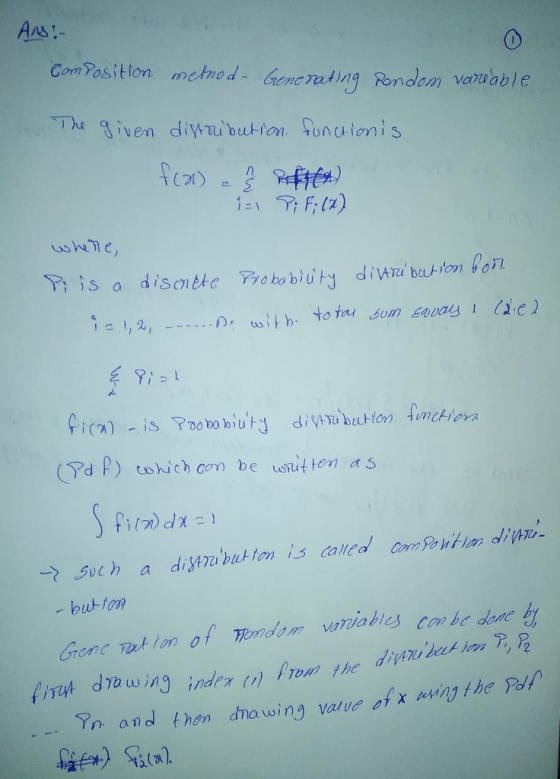 Ans:-
①
Composition method - Generating Random variable
The given distribution function is
f(x) = Σ
n
i=1 Pi Fi(x)
where,
Pi is a discrete Probability distribution for
i = 1,2, ......n. with total sum equals 1 (i.e)
Σ Pi = 1
i
fi(x) - is Probability distribution function
(Pdf) which can be written as
∫ fi(x) dx = 1
→ such a distribution is called composition distri-
-bution
Generation of Random variables can be done by
first drawing index (i) from the distribution P1, P2
... Pn and then drawing value of x using the Pdf
fi(x).